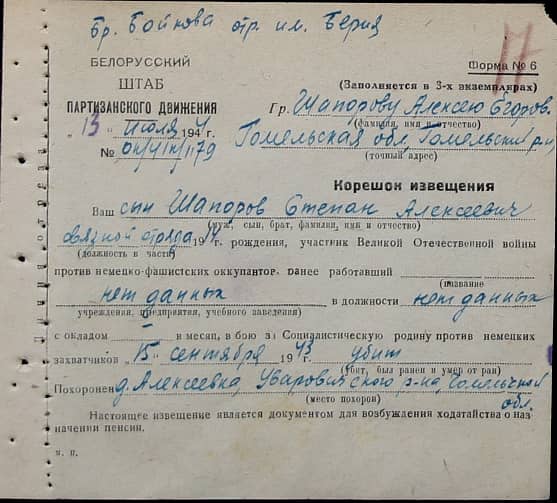 Бр. Бойкова отр. им. Берия
17
БЕЛОРУССКИЙ
ШТАБ
ПАРТИЗАНСКОГО ДВИЖЕНИЯ
Форма № 6
(Заполняется в 3-х экземплярах)
„13" июля 1944 г.
№
Гр. Шапорову Алексею Егоров.
(фамилия, имя и отчество)
Гомельская обл, Гомельский р-н
(точный адрес)
Корешок извещения
Ваш сын Шапоров Степан Алексеевич
(муж, сын, брат, фамилия, имя и отчество)
связной отряда 19 г. рождения, участник Великой Отечественной войны
(должность в части)
против немецко-фашистских оккупантов, ранее работавший
(название
нет данных в должности нет данных
учреждения, предприятия, учебного заведения)
с окладом — в месяц, в бою за Социалистическую родину против немецких
захватчиков „15" сентября 1943 г. убит
(убит, был ранен и умер от ран)
Похоронен д. Алексеевка, Уваровичского р-на, Гомельской обл.
(место похорон)
Настоящее извещение является документом для возбуждения ходатайства о наз
начении пенсии.
м. п.